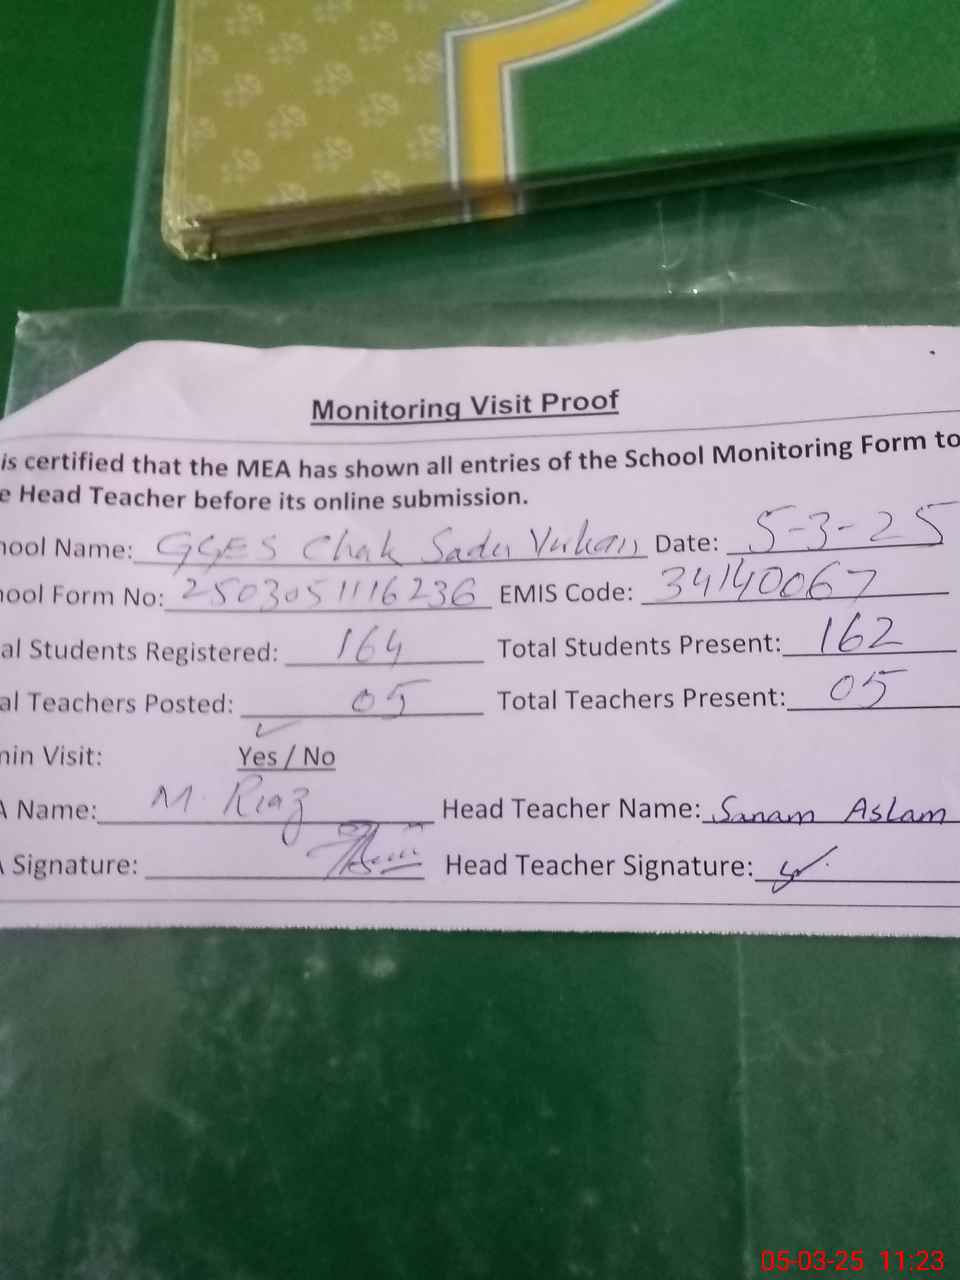 Monitoring Visit Proof
is certified that the MEA has shown all entries of the School Monitoring Form to
e Head Teacher before its online submission.
hool Name: GGES Chak Sadu Date: 5-3-25
hool Form No: 2503051116236 EMIS Code: 34140067
al Students Registered: 164 Total Students Present: 162
al Teachers Posted: 05 Total Teachers Present: 05
min Visit: Yes / No
A Name: M. Riaz Head Teacher Name: Sanam Aslam
A Signature: Head Teacher Signature:
05-03-25 11:23